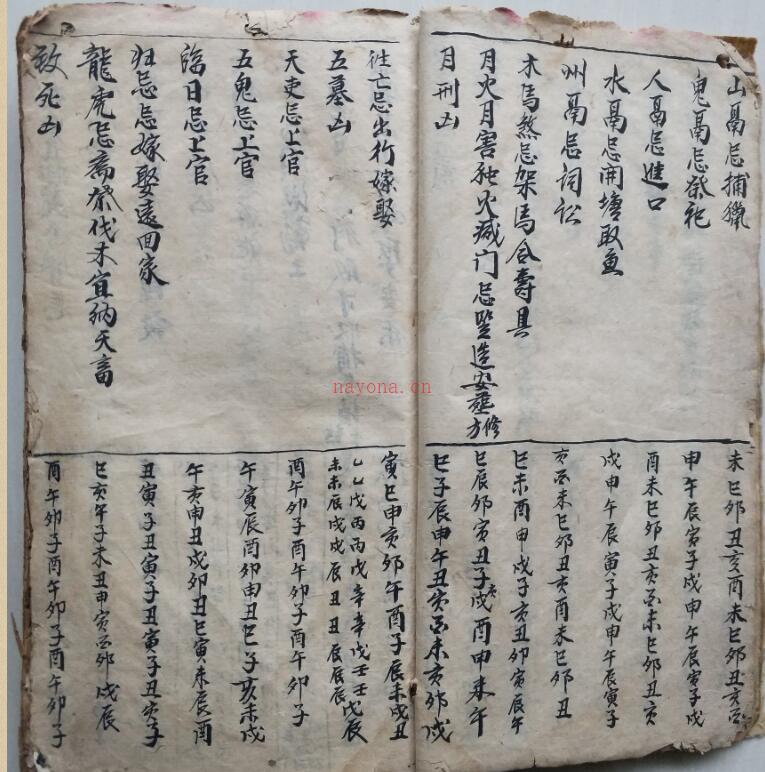 山鬲忌捕獵
未巳卯丑亥酉未巳卯丑亥酉
鬼鬲忌祭祀
申午辰寅子戌申午辰寅子戌
人鬲忌進口
酉未巳卯丑亥酉未巳卯丑亥
水鬲忌開塘取魚
戌申午辰寅子戌申午辰寅子
州鬲忌词訟
亥酉未巳卯丑亥酉未巳卯丑
木馬煞忌架馬合壽具
巳未酉申戌子亥丑卯寅辰午
月火月害独火滅门忌竪造安葬修方
巳辰卯寅丑子亥戌酉申未午
月刑凶
巳子辰申午丑亥酉未亥卯戌
徃亡忌出行嫁娶
寅巳申亥卯午酉子辰未戌丑
五墓凶
乙乙戊丙丙戊辛辛戊壬壬戊
未未辰戌戌辰丑丑辰辰辰辰
天吏忌上官
酉午卯子酉午卯子酉午卯子
五鬼忌上官
午寅辰酉卯申丑巳子亥未戌
臨日忌上官
午亥申丑戌卯子巳寅未辰酉
归忌忌嫁娶遠回家
丑寅子丑寅子丑寅子丑寅子
龍虎忌斋醮伐木宜纳天畜
巳亥午子未丑申寅酉卯戌辰
致死凶
酉午卯子酉午卯子酉午卯子
nayona.cn